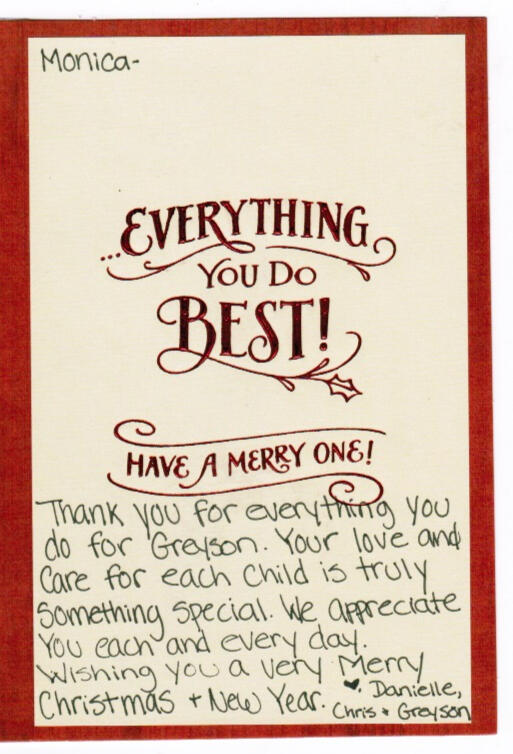 Monica-
...EVERYTHING
YOU DO
BEST!
HAVE A MERRY ONE!
Thank you for everything you
do for Greyson. Your love and
Care for each Child is truly
Something special. We appreciate
You each and every day.
Wishing you a very Merry
Christmas + New Year. ♥ Danielle,
Chris + Greyson